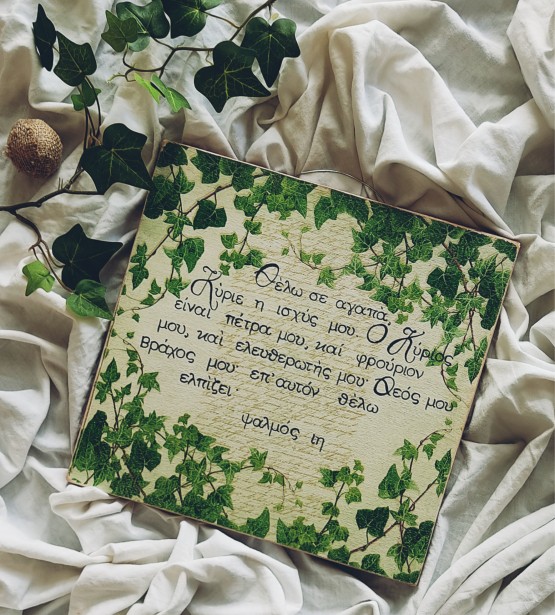 Θέλω σε αγαπά
Κύριε η ισχύς μου Ο Κύριος
είναι πέτρα μου, καί φρούριον
μου, καί ελευθερωτής μου· Θεός μου
Βράχος μου· επ' αυτόν θέλω
ελπίζει
ψαλμός ιη